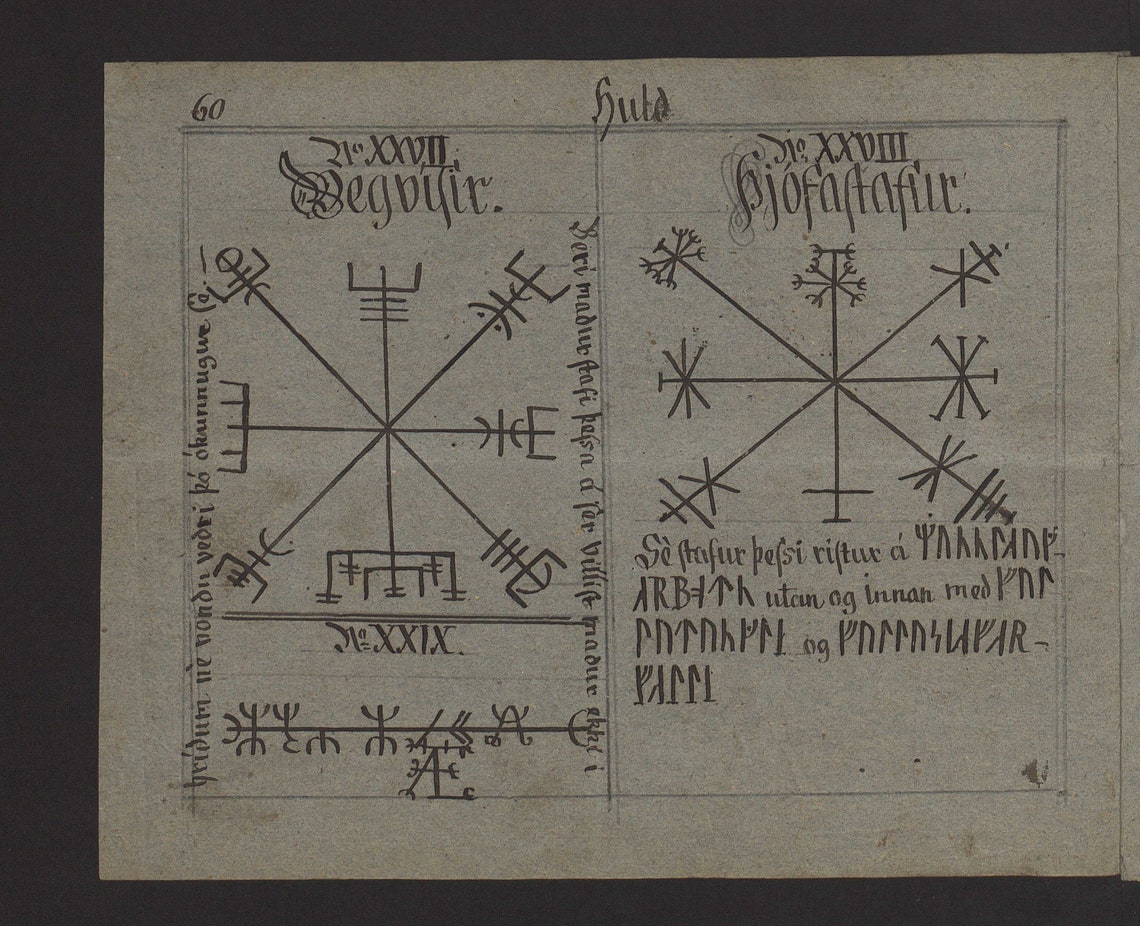 60
Huld
Nº XXVII.
Vegvísir.
Beri maður stafi þessa á sér villist maður ekki í
hríðum né vondu veðri þó ókunnugur sé.
Nº XXIX.
Nº XXVIII.
Þjófastafur.
Sé stafur þessi ristur á
utan og innan með
og